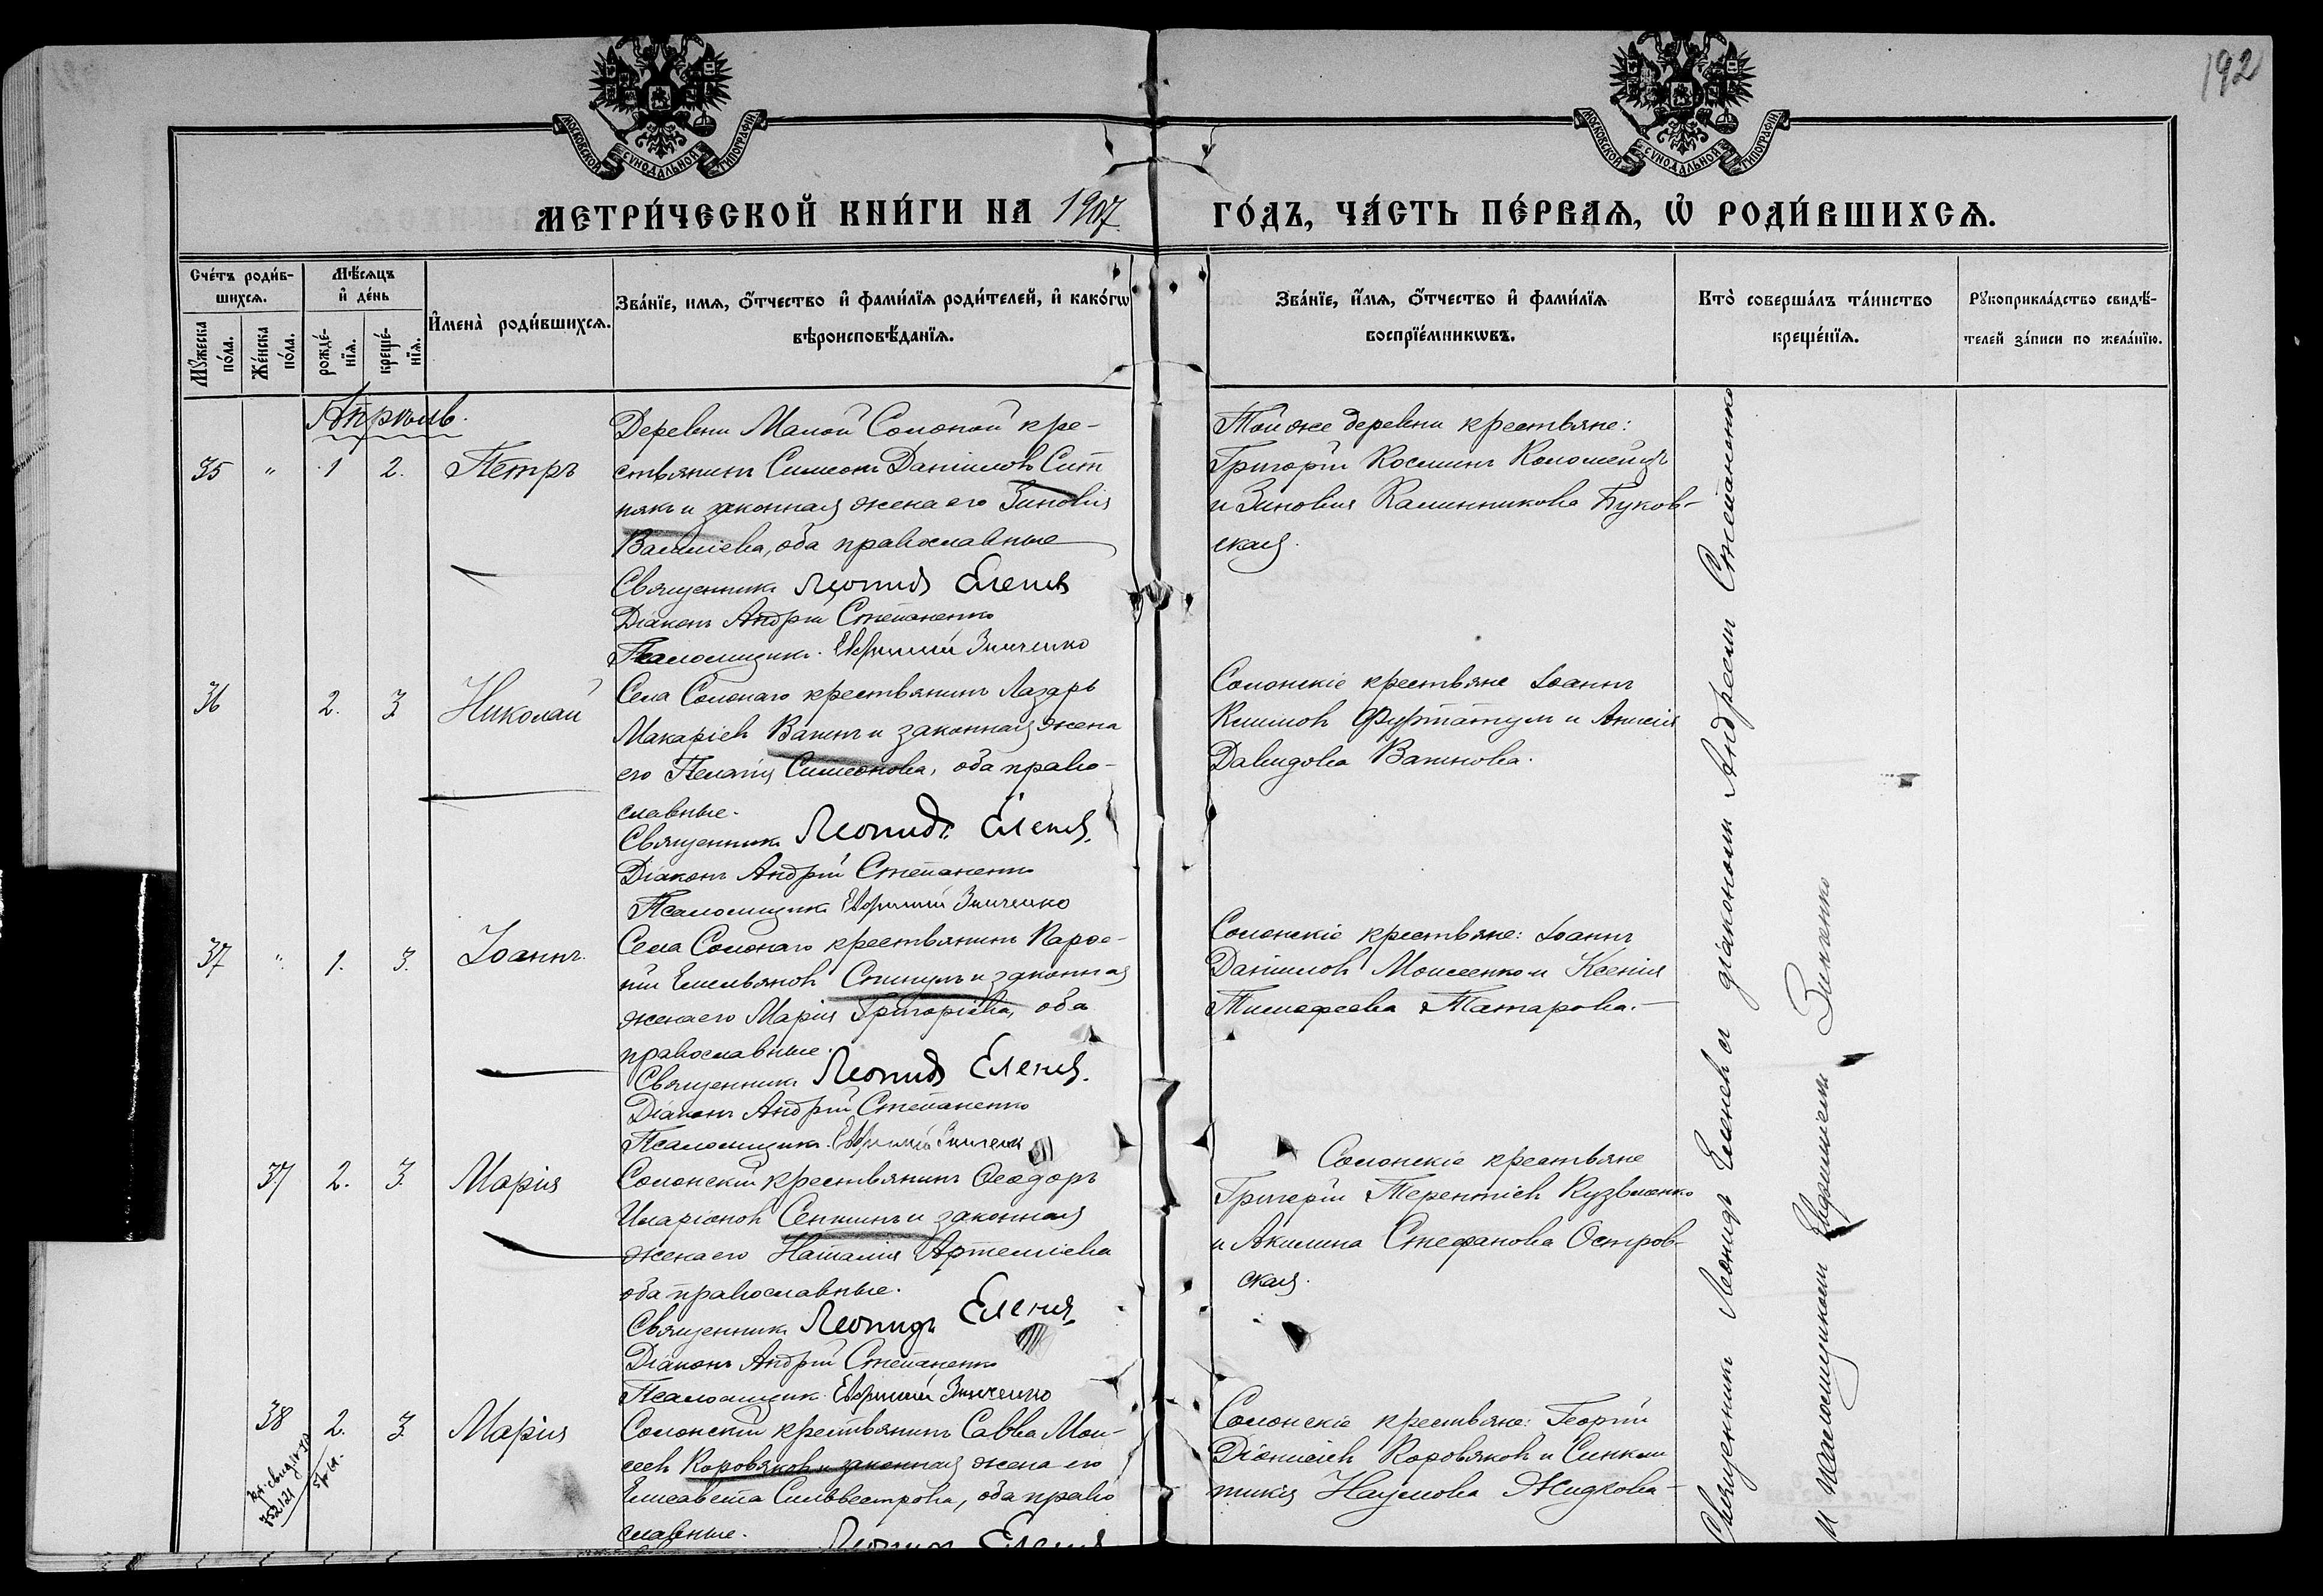 192
МОСКОВСКОЙ СУНОДАЛЬНОЙ ТИПОГРАФІИ
МОСКОВСКОЙ СУНОДАЛЬНОЙ ТИПОГРАФІИ
МЕТРИ́ЧЕСКОЙ КНИ́ГИ НА 1907
ГО́ДЪ, ЧА́СТЬ ПЕ́РВАѦ, Ѡ РОДИ́ВШИХСѦ.
Сче́тъ роди́в-
шихсѧ.
Мѣ́сѧцъ
и҆ де́нь
Мꙋ́жеска
по́ла.
Же́нска
по́ла.
рожде́-
нїѧ.
креще́-
нїѧ.
И҆мена̀ роди́вшихсѧ.
Зва́нїе, имѧ, ѻ҆́тчество и҆ фами́лїѧ роди́телей, и҆ како́гѡ
вѣроисповѣ́данїѧ.
Зва́нїе, и҆́мѧ, ѻ҆́тчество и҆ фами́лїѧ
воспрїе́мникѡвъ.
Кто̀ соверша́лъ та́инство
креще́нїѧ.
Рꙋкоприкла́дство свидѣ́-
телей за́писи по жела́нїю.
Апрѣль.
35 " 1 2. Петръ
Деревни Малой Солоной кре-
стьянинъ Симеонъ Даніиловъ Сит
някъ и законная жена его Зиновія
Василіева, оба православные
Священникъ Леонидъ Еленевъ
Діаконъ Андрей Степаненко
Псаломщикъ Евфимій Зинченко
Той же деревни крестьяне:
Григорій Косминъ Коломейцъ
и Зиновія Калинникова Буков-
ская.
36 2. 3. Николай
Села Солонаго крестьянинъ Лазарь
Макаріевъ Ватинъ и законная жена
его Пелагія Симеонова, оба право-
славные.
Священникъ Леонидъ Еленевъ
Діаконъ Андрей Степаненко
Псаломщикъ Евфимій Зинченко
Солонскіе крестьяне Іоаннъ
Климовъ и Анисія
Давидова Ватинова.
37 " 1. 3. Іоаннъ.
Села Солонаго крестьянинъ Парфе-
ній Емельяновъ и законная
жена его Марія Григоріева, оба
православные.
Священникъ Леонидъ Еленевъ
Діаконъ Андрей Степаненко
Псаломщикъ Евфимій Зинченко
Солонскіе крестьяне: Іоаннъ
Даніиловъ Моисеенко и Ксенія
Тимофеева Татарова.
37 2. 3. Марія
Солонскій крестьянинъ Феодоръ
Иларіоновъ Сенкинъ и законная
жена его Наталія Артеміева
оба православные.
Священникъ Леонидъ Еленевъ
Діаконъ Андрей Степаненко
Псаломщикъ Евфимій Зинченко
Солонскіе крестьяне
Григорій Терентіевъ Кузьменко
и Акилина Стефанова Остров-
ская.
38 2. 3. Марія
Солонскій крестьянинъ Савва Мои-
сеевъ Коровяковъ и законная жена его
Елисавета Сильвестрова, оба право
славные.
Леонидъ Еленевъ
Солонскіе крестьяне: Георгій
Діонисіевъ Коровяковъ и Синкли
тикія Наумова Жидкова
Священникъ Леонидъ Еленевъ съ діакономъ Андреемъ Степаненко
и псаломщикомъ Евфиміемъ Зинченко